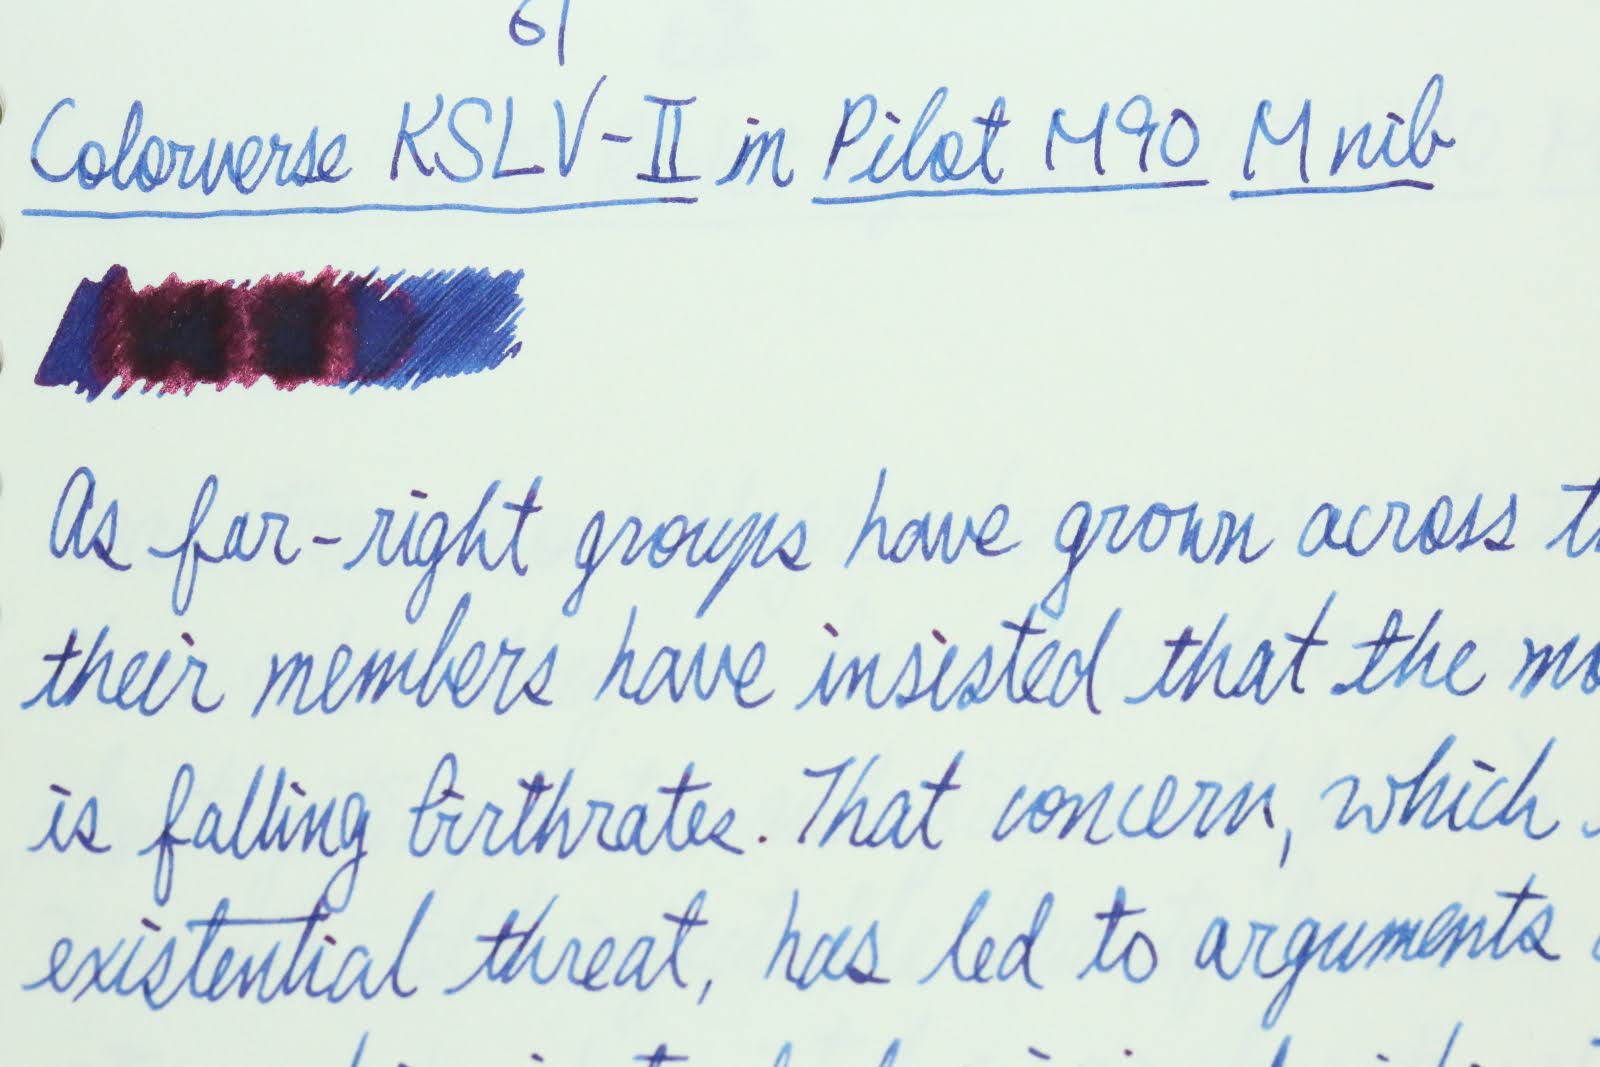 61
Colorverse KSLV-II in Pilot M90 M nib
As far-right groups have grown across
their members have insisted that the
is falling birthrates. That concern, which
existential threat, has led to arguments